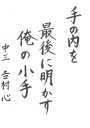 手の内を
最後に明かす
俺の小手
中三 吉村 心